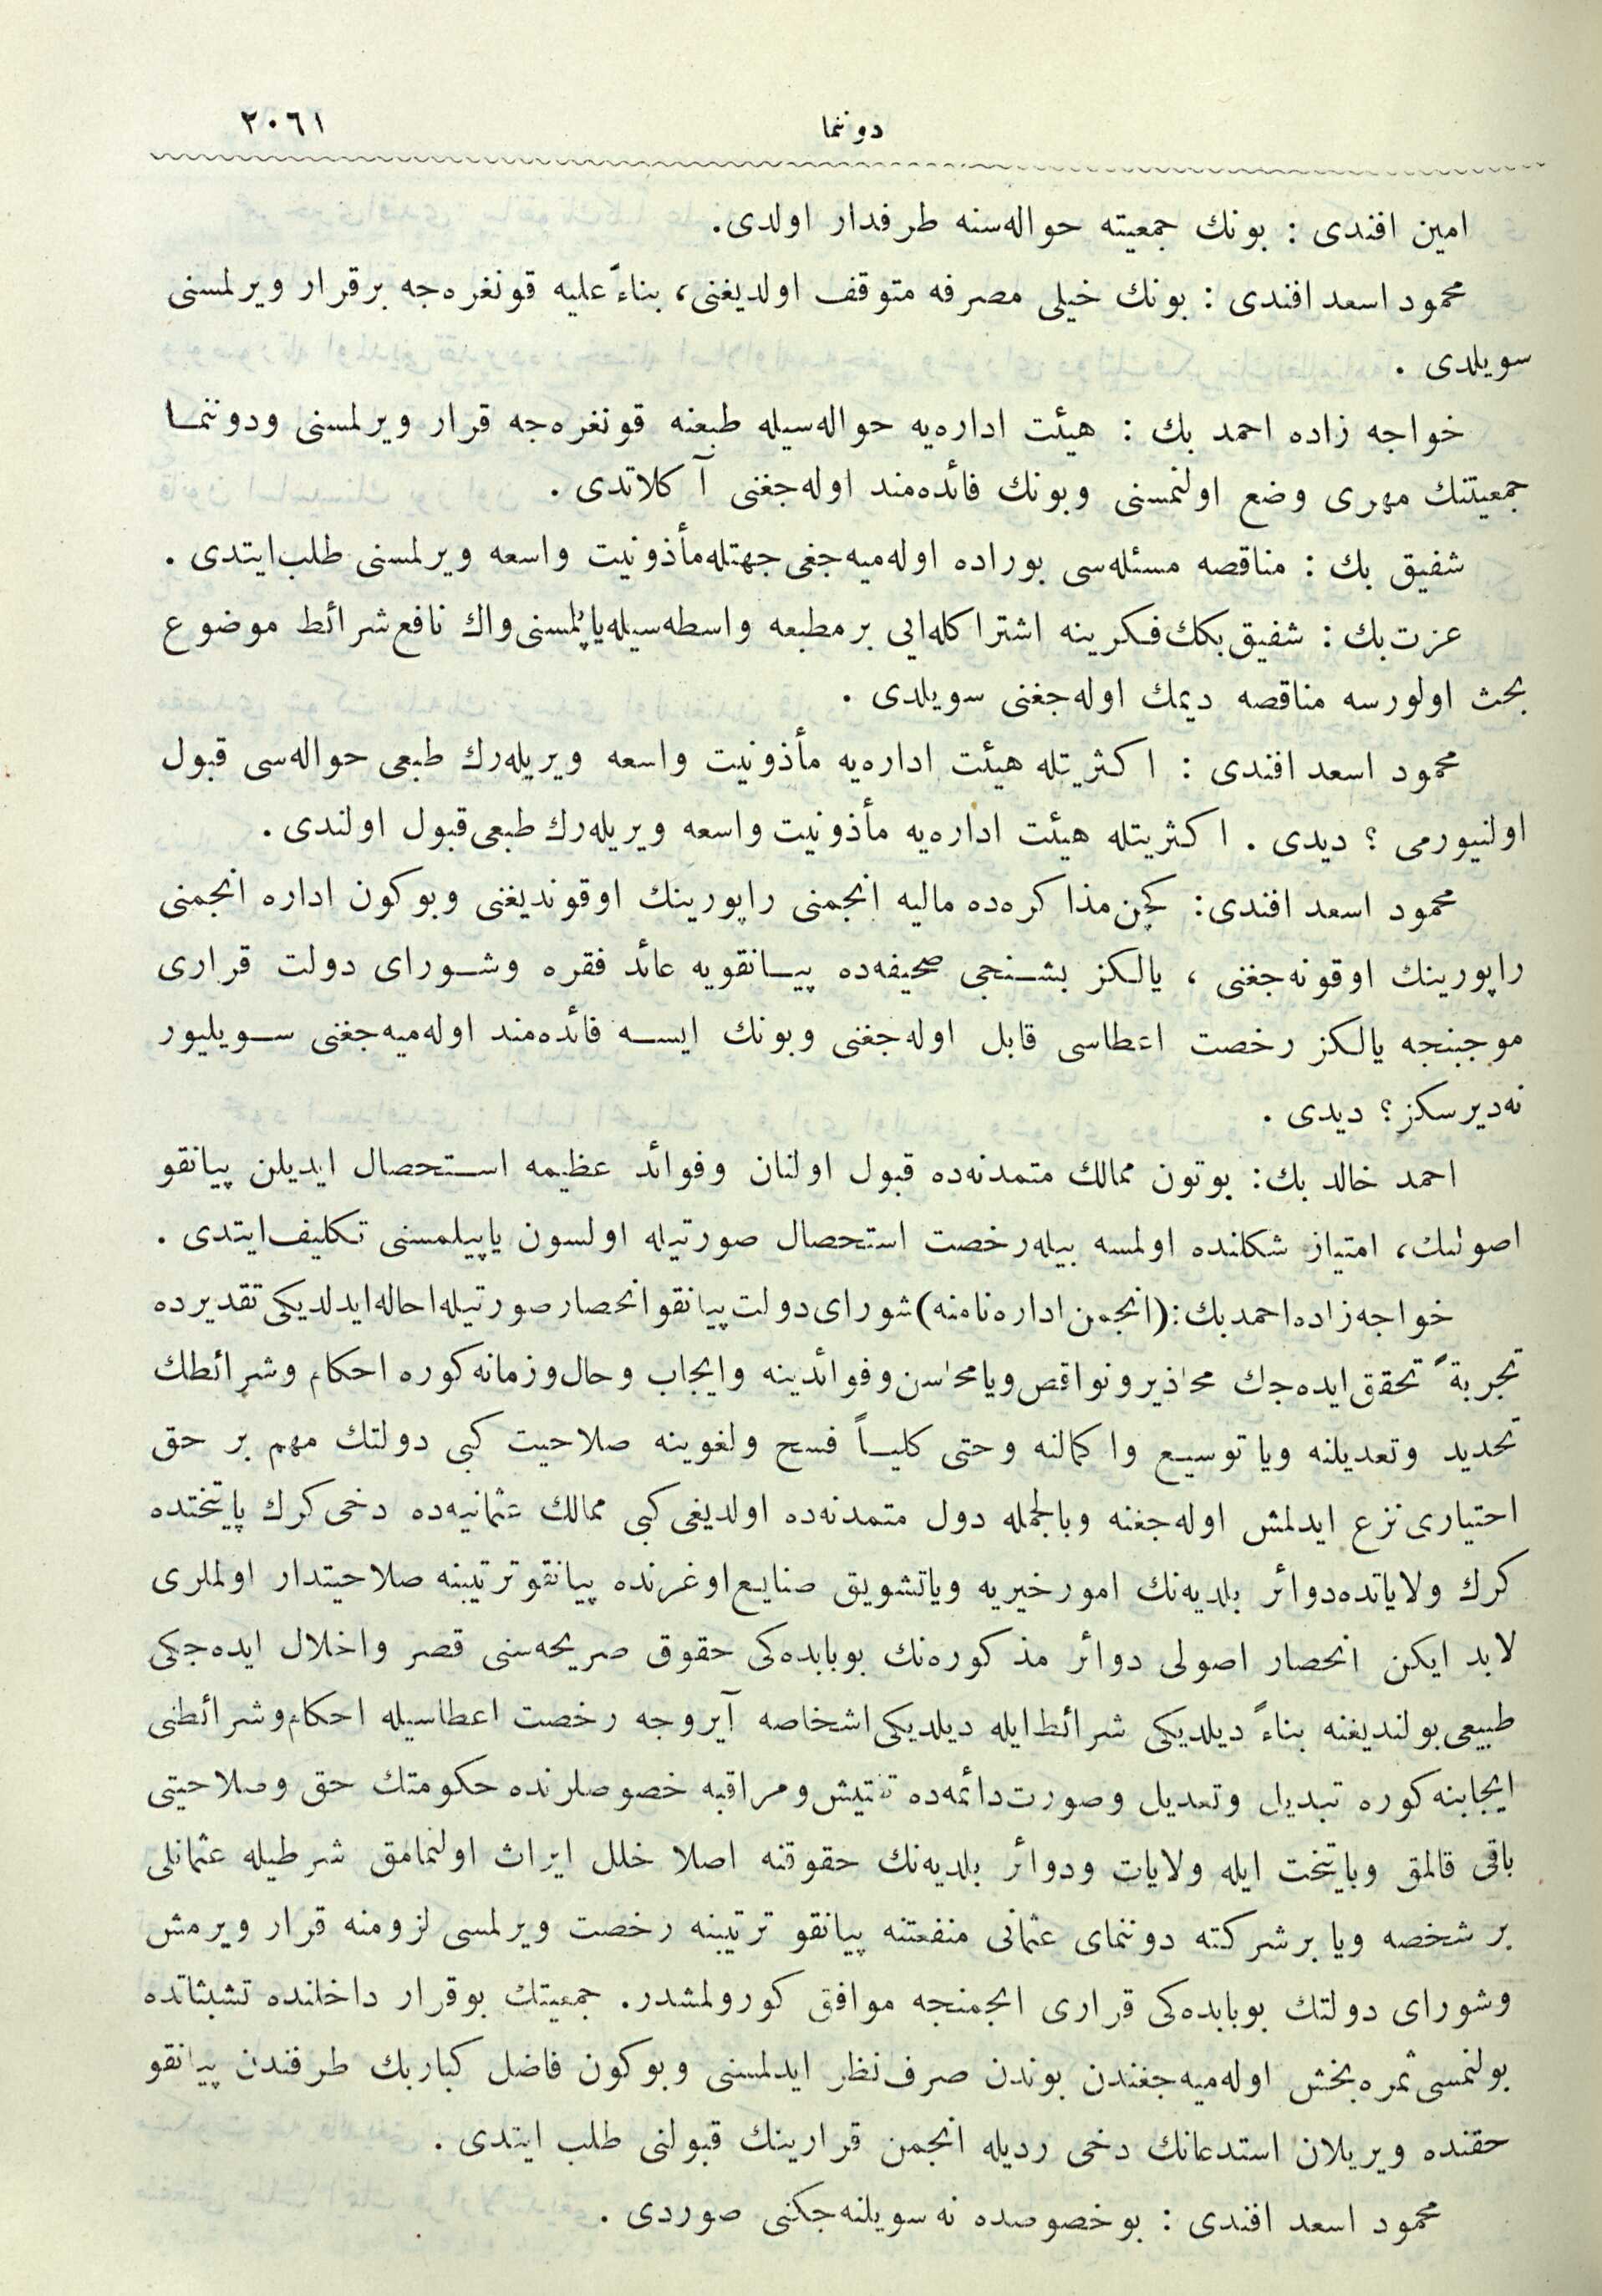 دوننما ٢٠٦١
امين افندى : بونك جمعيته حواله‌سنه طرفدار اولدى.
محمود اسعد افندى : بونك خيلى مصرفه متوقف اولديغنى، بناءً عليه قونغره‌جه برقرار ويرلمسنى
سويلدى .
خواجه زاده احمد بك : هيئت اداره‌يه حواله‌سيله طبعنه قونغره‌جه قرار ويرلمسنى ودوننمـا
جمعيتنك مهرى وضع اولنمسنى وبونك فائده‌مند اوله‌جغنى آ كلاتدى .
شفيق بك : مناقصه مسئله‌سى بوراده اوله‌ميه‌جغى جهتله مأذونيت واسعه ويرلمسنى طلب ايتدى .
عزت بك : شفيق بكك فكرينه اشتراكله ايى بر مطبعه واسطه‌سيله ياپلمسنى واك نافع شرائط موضوع
بحث اولورسه مناقصه ديمك اوله‌جغنى سويلدى .
محمود اسعد افندى : اكثريتله هيئت اداره‌يه مأذونيت واسعه ويريله‌رك طبعى حواله‌سى قبول
اولنيورمى ؟ ديدى . اكثريتله هيئت اداره‌يه مأذونيت واسعه ويريله‌رك طبعى قبول اولندى .
محمود اسعد افندى : كچن مذاكره‌ده ماليه انجمنى راپورينك اوقونديغنى وبوكون اداره انجمنى
راپورينك اوقونه‌جغنى ، يالكز بشنجى صحيفه‌ده پيانقويه عائد فقره وشوراى دولت قرارى
موجبنجه يالكز رخصت اعطاسى قابل اوله‌جغنى وبونك ايسه فائده‌مند اوله‌ميه‌جغنى سويليور
نه‌ديرسكز؟ ديدى .
احمد خالد بك : بوتون ممالك متمدنه‌ده قبول اولنان وفوائد عظيمه استحصال ايديلن پيانقو
اصولنك، امتياز شكلنده اولمسه بيله رخصت استحصال صورتيله اولسون ياپيلمسنى تكليف ايتدى .
خواجه زاده احمد بك : (انجمن اداره نامنه) شوراى دولت پيانقو انحصار صورتيله احاله ايدلديكى تقديرده
تجربةً تحقق ايده‌جك محاذير ونواقص ويا محاسن وفوائدينه وايجاب وحال وزمانه كوره احكام وشرائطك
تحديد وتعديلنه ويا توسيع واكمالنه وحتى كليـاً فسح ولغوينه صلاحيت كبى دولتك مهم بر حق
احتيارى نزع ايدلمش اوله‌جغنه وبالجمله دول متمدنه‌ده اولديغى كبى ممالك عثمانيه‌ده دخى كرك پايتختده
كرك ولاياتده دوائر بلديه‌نك امور خيريه وياتشويق صنايع اوغرنده پيانقو ترتيبنه صلاحيتدار اولملرى
لابد ايكن انحصار اصولى دوائر مذكوره‌نك بوبابده‌كى حقوق صريحه‌سنى قصر واخلال ايده‌جكى
طبيعى بولنديغنه بناءً ديلديكى شرائط ايله ديلديكى اشخاصه آيروجه رخصت اعطاسيله احكام وشرائطنى
ايجابنه كوره تبديل وتعديل وصورت دائمه‌ده تفتيش ومراقبه خصوصلرنده حكومتك حق وصلاحيتى
باقى قالمق وپايتخت ايله ولايات ودوائر بلديه‌نك حقوقنه اصلا خلل ايراث اولنمامق شرطيله عثمانلى
بر شخصه ويا بر شركته دوننماى عثمانى منفعتنه پيانقو ترتيبنه رخصت ويرلمسى لزومنه قرار ويرمش
وشوراى دولتك بوبابده‌كى قرارى انجمنجه موافق كورولمشدر. جمعيتك بوقرار داخلنده تشبثاتده
بولنمسى ثمره بخش اوله‌ميه‌جغندن بوندن صرف نظر ايدلمسنى وبوكون فاضل كبار بك طرفندن پيانقو
حقنده ويريلان استدعانك دخى رديله انجمن قرارينك قبولنى طلب ايتدى .
محمود اسعد افندى : بو خصوصده نه سويلنه‌جكنى صوردى .